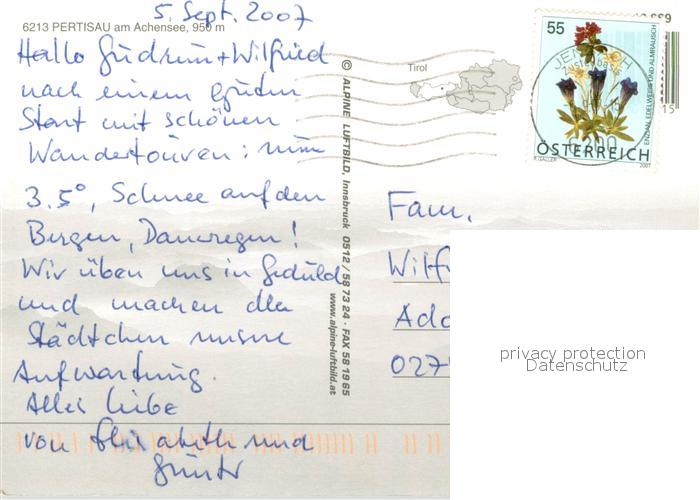 5. Sept. 2007
6213 PERTISAU am Achensee, 950 m
Hallo Gudrun + Wilfried
nach einem guten
Start mit schönen
Wandertouren: nun
3.5°, Schnee auf den
Bergen, Dauerregen!
Wir üben uns in Geduld
und machen den
Städtchen unsere
Aufwartung.
Alles Liebe
von Elisabeth und
Günter
© ALPINE LUFTBILD, Innsbruck 0512 / 58 73 24 · FAX 58 19 65
www.alpine-luftbild.at
Tirol
55
ENZIAN, EDELWEISS UND ALMRAUSCH
ÖSTERREICH
2007
Fam.
Wilf
Ado
027
15
privacy protection
Datenschutz